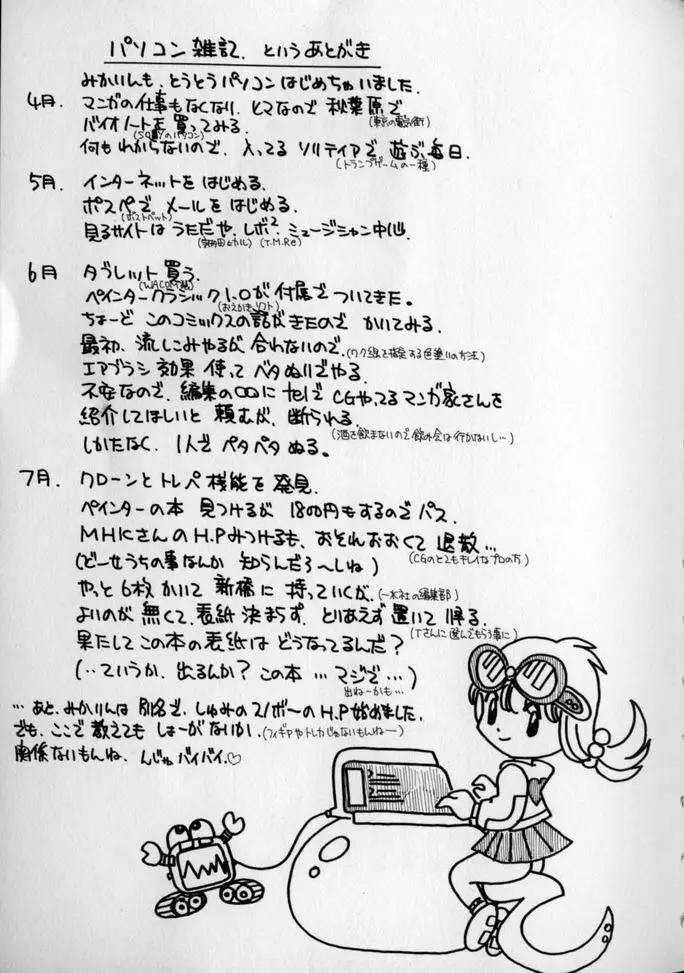 パソコン雑記、というあとがき
みかりんも、とうとうパソコンはじめちゃいました。
4月. マンガの仕事もなくなり、ヒマなので 秋葉原で
(東京の電気街)
バイオノートを買ってみる.
(SONYのパソコン)
何もわからないので、入ってる ソリティアで 遊ぶ毎日.
(トランプゲームの一種)
5月. インターネットを はじめる.
ポスペで メールを はじめる.
(ポストペット)
見るサイトは うただや、レボ2 ミュージシャン中心.
(宇多田ヒカル) (T.M.Re)
6月 タブレット 買う.
(WACOM製)
ペインタークラシック1.0が 付属で ついてきた。
(おえかきソフト)
ちょーど このコミックスの話がきたので かいてみる.
最初、流しこみやるが 合わないので.(ワク線で指定する色塗りの方法)
エアブラシ 効果 使って ベタぬりでやる.
不安なので、編集の〇〇に telで CGやってるマンガ家さんを
紹介してほしいと 頼むが、断られる.
(酒を飲まないので飲み会は行かないし…)
しかたなく、1人で ペタペタ ぬる。
7月. クローンと トレペ 機能を 発見.
ペインターの本 見つけるが 1800円もするのでパス.
MHKさんの H.P みつけるも、おそれおおくて 退散…
(CGのとてもキレイなプロの方)
(どーせうちの事なんか 知らんだろ〜しね)
やっと 6枚 かいて 新橋に 持っていくが、(一水社の編集部)
よいのが 無くて、表紙 決まらず、とりあえず 置いて 帰る.
(Tさんに選んでもらう事に)
果たして この本の表紙は どうなってるんだ?
(‥ていうか、出るんか? この本 … マジで …)
出ねーかも…
… あと、みかりんは 別名で、しゅみのスノボーの H.P 始めました.
でも、ここで 教えても しょーがないか.(フィギアやトレカじゃないもんねー)
関係ないもんね、んじゃ バイバイ.♡